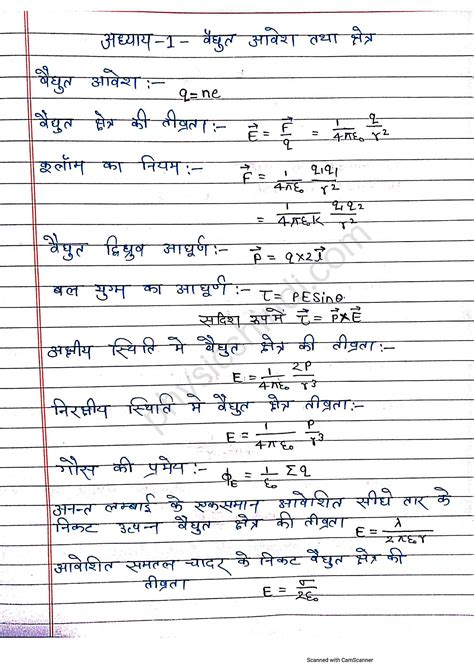 अध्याय-1- वैद्युत आवेश तथा क्षेत्र
वैद्युत आवेश :-
q=ne
वैद्युत क्षेत्र की तीव्रता:- \vec{E} = \frac{\vec{F}}{q} = \frac{1}{4πε₀} \frac{q}{r²}
कूलॉम का नियम:- \vec{F} = \frac{1}{4πε₀} \frac{q₁q₁}{r²}
= \frac{1}{4πε₀K} \frac{q₁q₂}{r²}
वैद्युत द्विध्रुव आघूर्ण:- \vec{P} = q×2\vec{l}
बल युग्म का आघूर्ण:- τ = PEsinθ
सदिश रूप में \vec{τ} = \vec{P}×\vec{E}
अक्षीय स्थिति मे वैद्युत क्षेत्र की तीव्रता:-
E = \frac{1}{4πε₀} \frac{2P}{r³}
निरक्षीय स्थिति मे वैद्युत क्षेत्र तीव्रता:-
E = \frac{1}{4πε₀} \frac{P}{r³}
गौस की प्रमेय:- ϕ_E = \frac{1}{ε₀} Σq
अनन्त लम्बाई के एकसमान आवेशित सीधे तार के
निकट उत्पन्न वैद्युत क्षेत्र की तीव्रता E = \frac{λ}{2πε₀r}
आवेशित समतल चादर के निकट वैद्युत क्षेत्र की
तीव्रता E = \frac{σ}{2ε₀}
physicshindi.com
Scanned with CamScanner